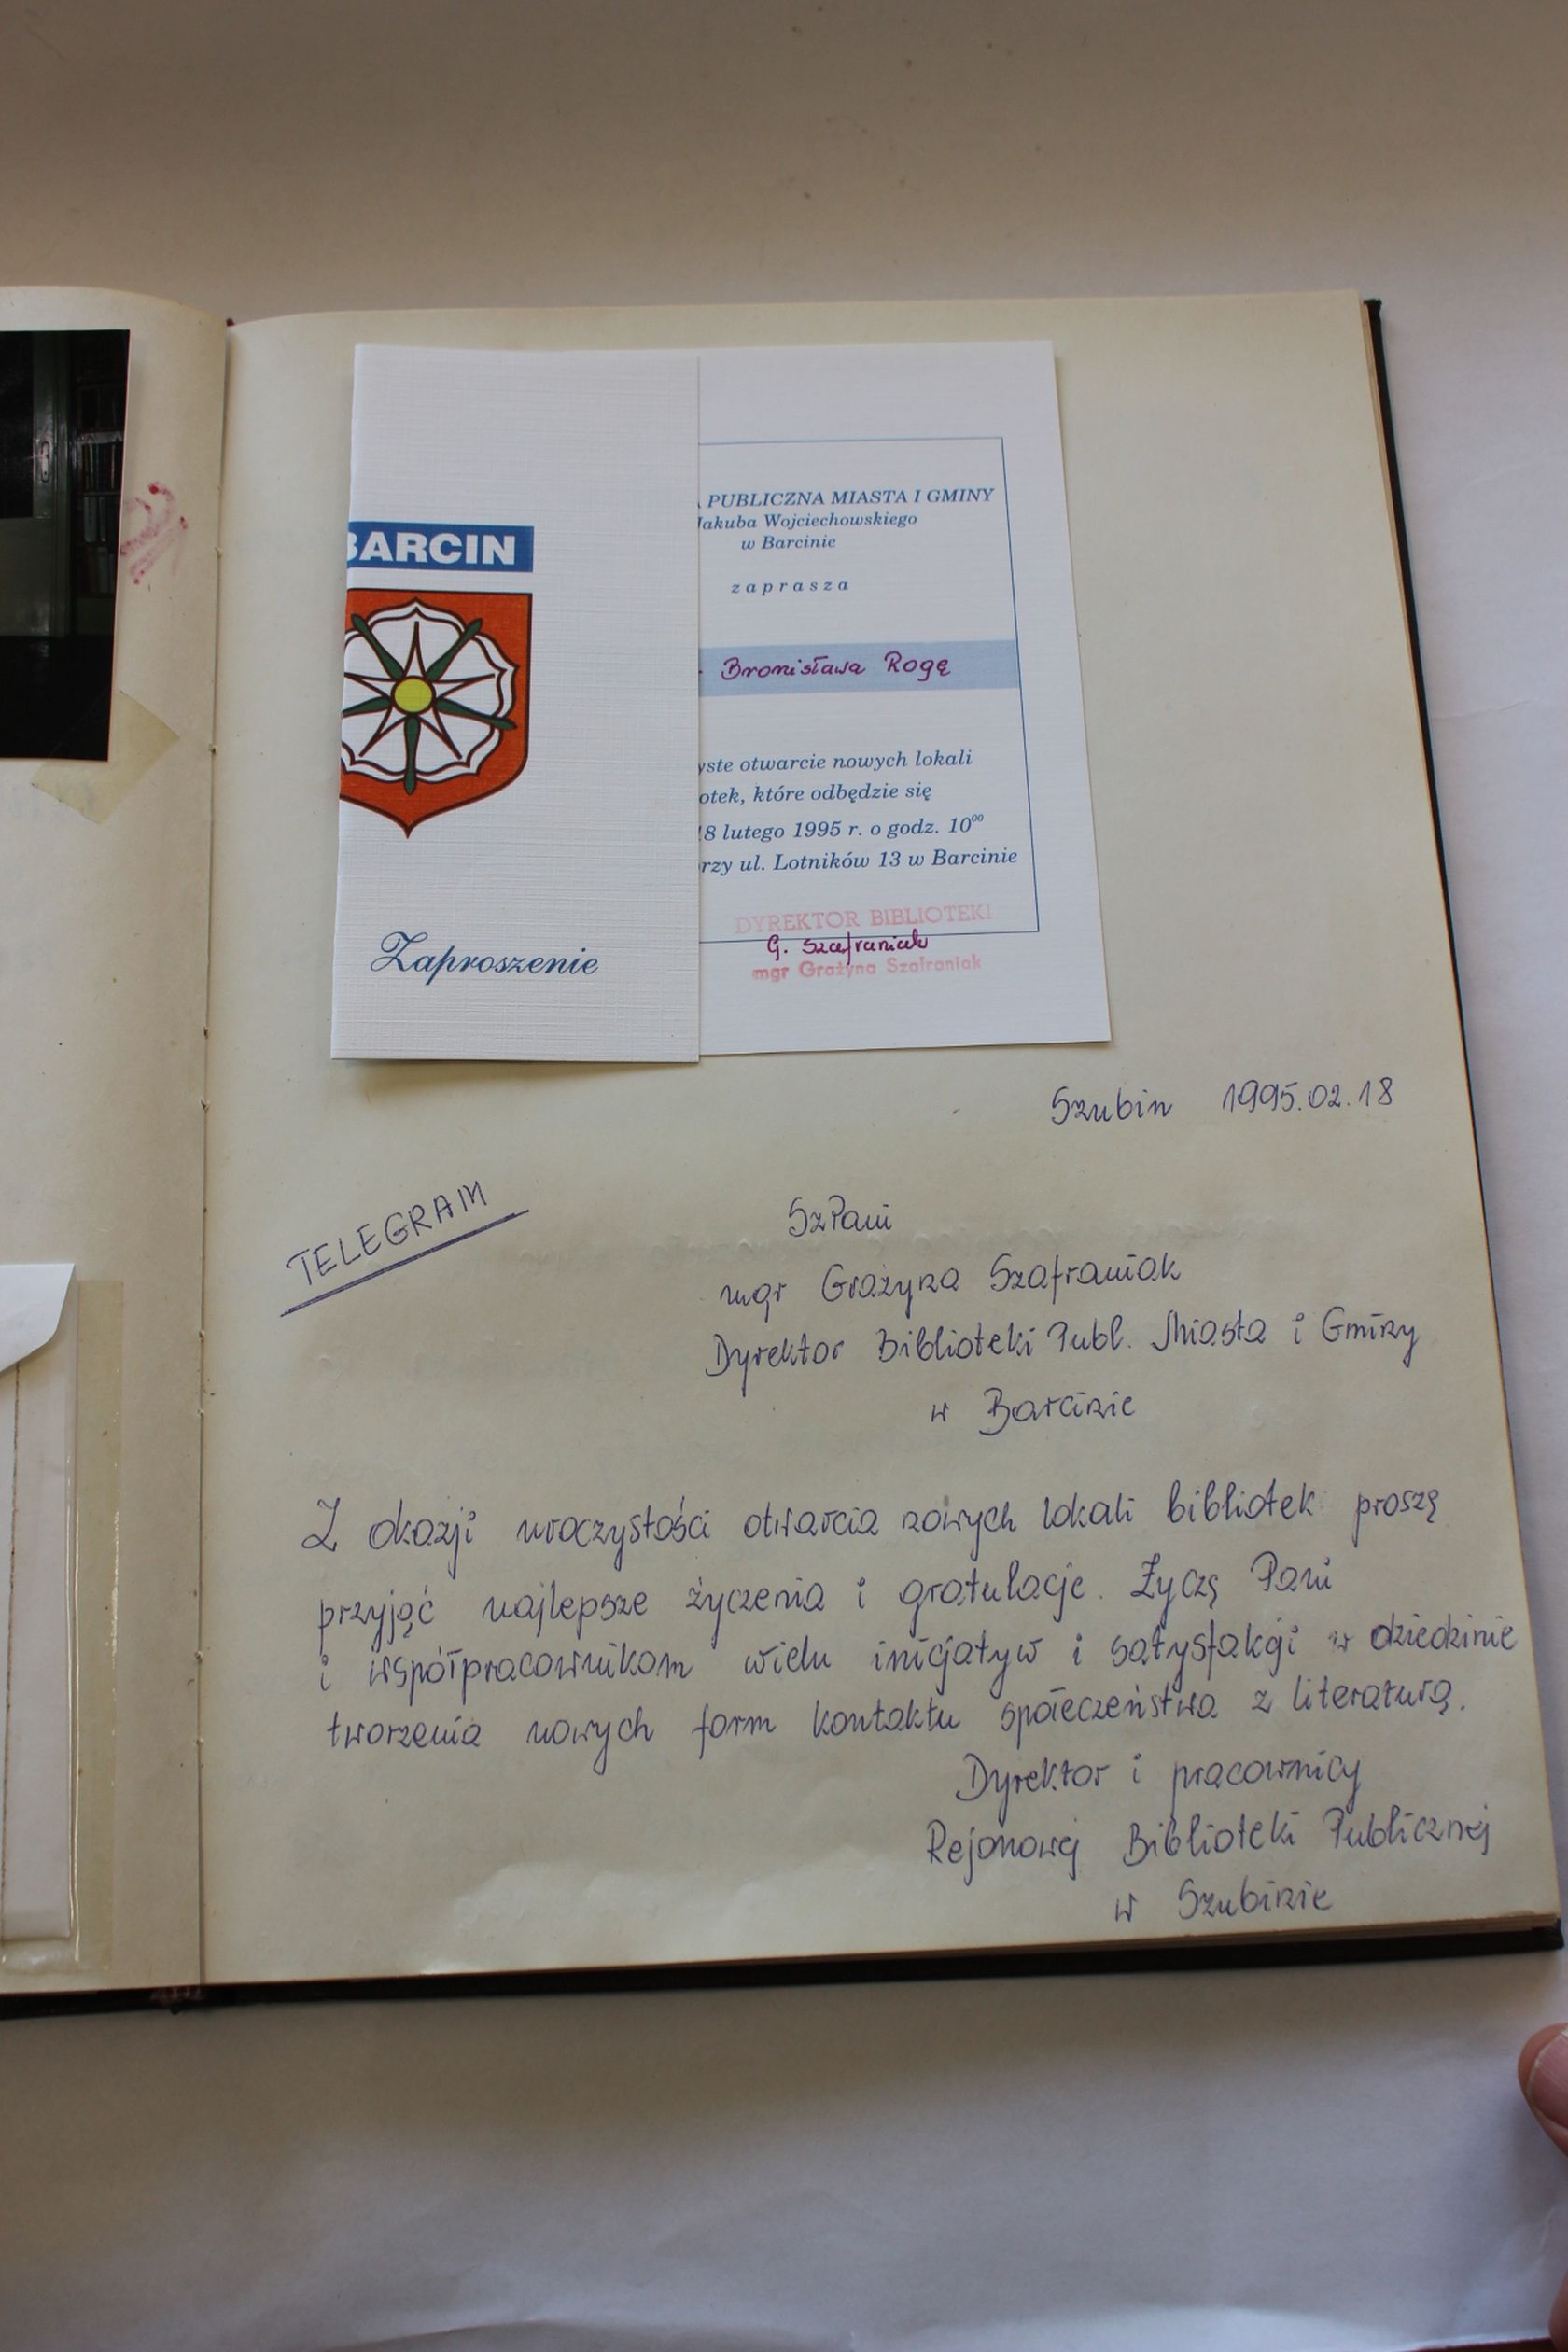 BARCIN
Zaproszenie
PUBLICZNA MIASTA I GMINY
Jakuba Wojciechowskiego
w Barcinie
zaprasza
Bronisława Rogę
yste otwarcie nowych lokali
otek, które odbędzie się
18 lutego 1995 r. o godz. 10⁰⁰
rzy ul. Lotników 13 w Barcinie
DYREKTOR BIBLIOTEKI
G. Szafraniak
mgr Grażyna Szafraniak
Szubin 1995.02.18
TELEGRAM
Sz Pani
mgr Grażyna Szafraniak
Dyrektor Biblioteki Publ. Miasta i Gminy
w Barcinie
Z okazji uroczystości otwarcia nowych lokali bibliotek proszę
przyjąć najlepsze życzenia i gratulacje. Życzę Pani
i współpracownikom wielu inicjatyw i satysfakcji w dziedzinie
tworzenia nowych form kontaktu społeczeństwa z literaturą.
Dyrektor i pracownicy
Rejonowej Biblioteki Publicznej
w Szubinie